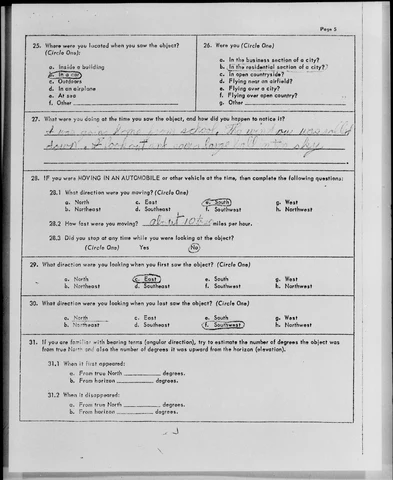 Page 5
25. Where were you located when you saw the object?
(Circle One):
a. Inside a building
b. In a car
c. Outdoors
d. In an airplane
e. At sea
f. Other
26. Were you (Circle One)
a. In the business section of a city?
b. In the residential section of a city?
c. In open countryside?
d. Flying near an airfield?
e. Flying over a city?
f. Flying over open country?
g. Other
27. What were you doing at the time you saw the object, and how did you happen to notice it?
I was going home from school. The window was rolled
down. I look out and saw a large ball in the sky
28. IF you were MOVING IN AN AUTOMOBILE or other vehicle at the time, then complete the following questions:
28.1 What direction were you moving? (Circle One)
a. North c. East e. South g. West
b. Northeast d. Southeast f. Southwest h. Northwest
28.2 How fast were you moving? about 10 miles per hour.
28.3 Did you stop at any time while you were looking at the object?
(Circle One) Yes No
29. What direction were you looking when you first saw the object? (Circle One)
a. North c. East e. South g. West
b. Northeast d. Southeast f. Southwest h. Northwest
30. What direction were you looking when you last saw the object? (Circle One)
a. North c. East e. South g. West
b. Northeast d. Southeast f. Southwest h. Northwest
31. If you are familiar with bearing terms (angular direction), try to estimate the number of degrees the object was
from true North and also the number of degrees it was upward from the horizon (elevation).
31.1 When it first appeared:
a. From true North degrees.
b. From horizon degrees.
31.2 When it disappeared:
a. From true North degrees.
b. From horizon degrees.